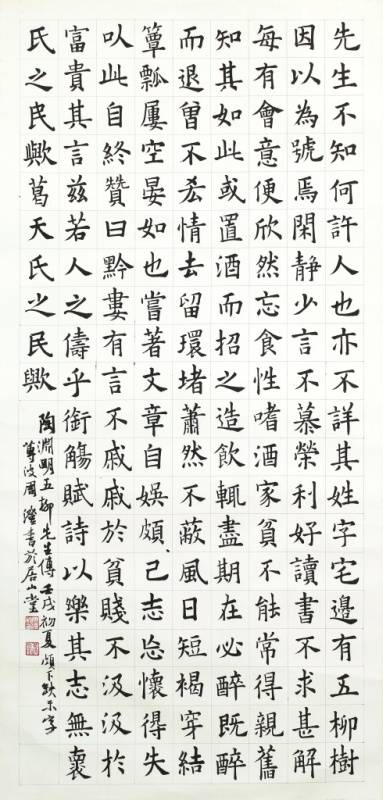 先生不知何許人也亦不詳其姓字宅邊有五柳樹
因以為號焉閑靜少言不慕榮利好讀書不求甚解
每有會意便欣然忘食性嗜酒家貧不能常得親舊
知其如此或置酒而招之造飲輒盡期在必醉既醉
而退曾不吝情去留環堵蕭然不蔽風日短褐穿結
簞瓢屢空晏如也嘗著文章自娛頗、己志忘懷得失
以此自終贊曰黔婁有言不戚戚於貧賤不汲汲於
富貴其言茲若人之儔乎銜觴賦詩以樂其志無懷
氏之民歟葛天氏之民歟
陶淵明五柳先生傳壬戌初夏頗下缺示字
蓴波周澄書於居山堂